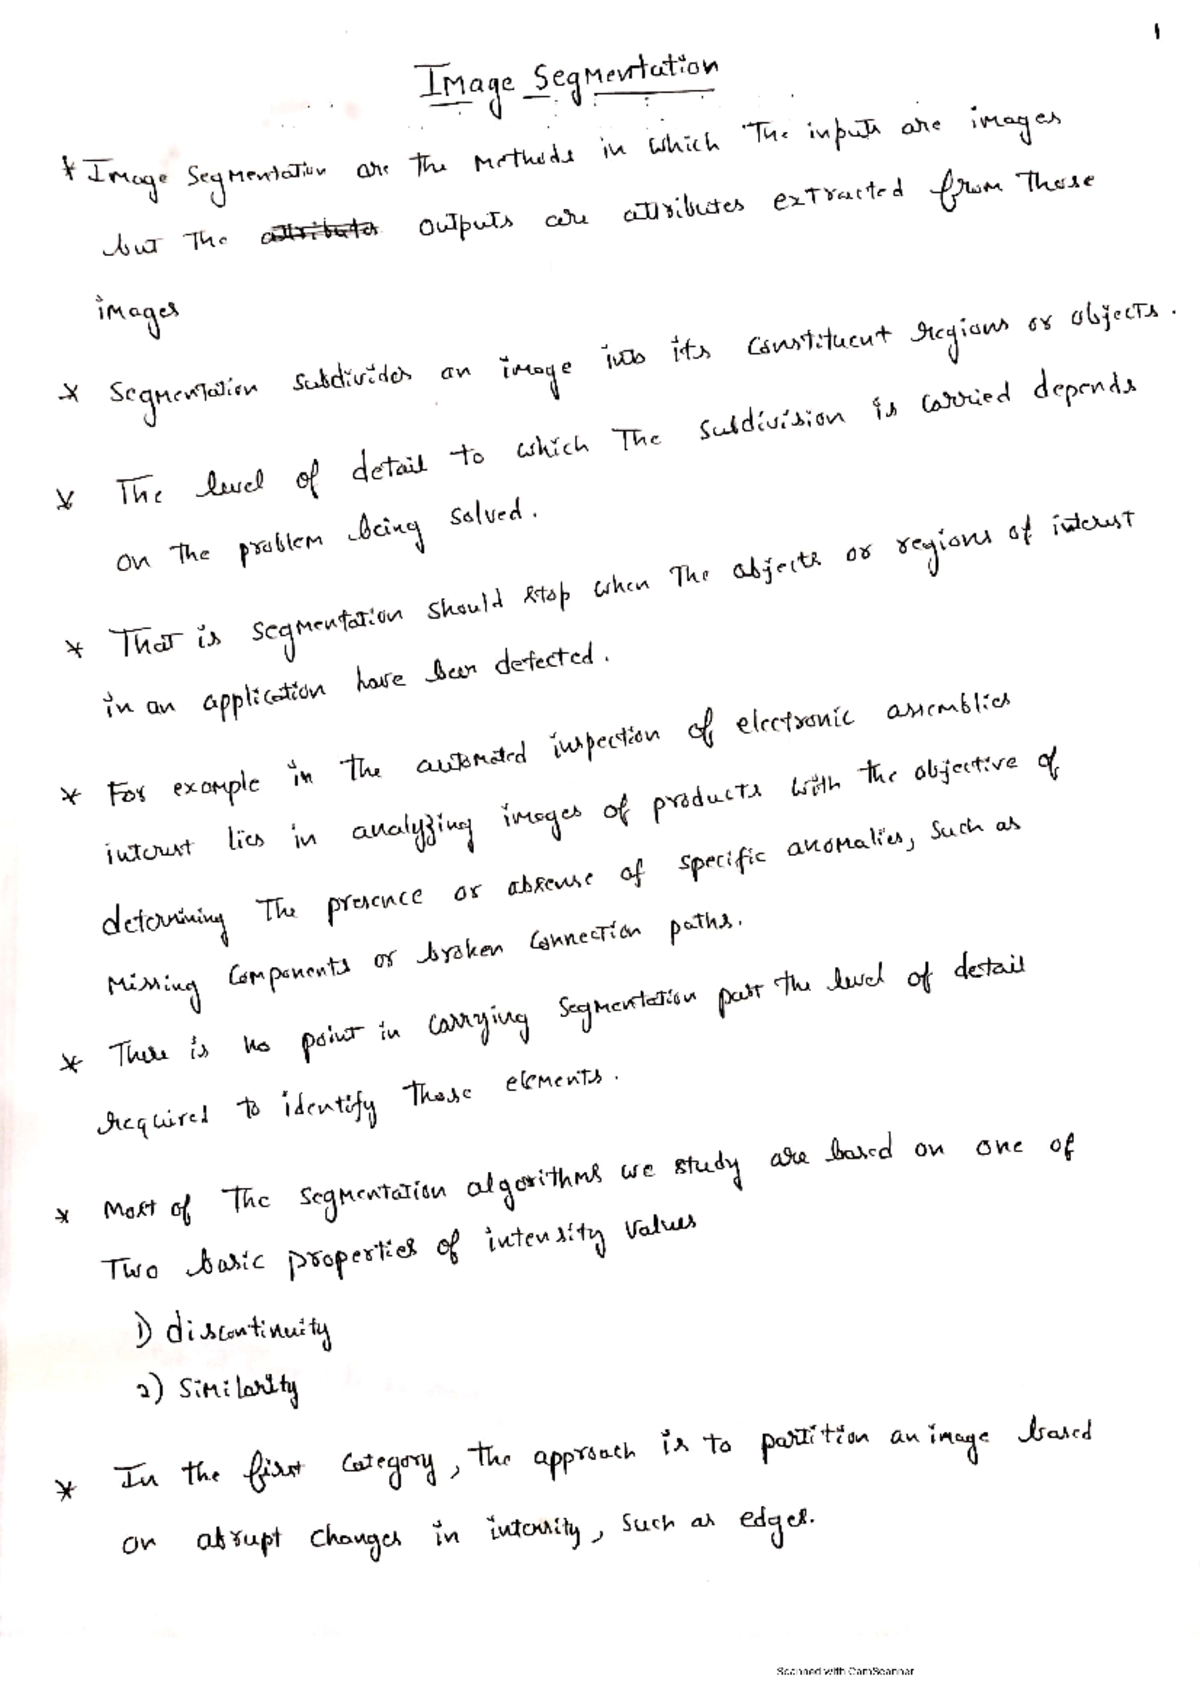 1
Image Segmentation
* Image Segmentation are the Methods in which The inputs are images
but The attributes outputs are attributes extracted from those
images
* Segmentation subdivides an image into its constituent regions or objects.
* The level of detail to which The subdivision is carried depends
on The problem being solved.
* That is segmentation should stop when The objects or regions of interest
in an application have been detected.
* For example in The automated inspection of electronic assemblies
interest lies in analyzing images of products with the objective of
determining The presence or absense of specific anomalies, such as
Missing Components or broken Connection paths.
* There is no point in carrying segmentation past The level of detail
required to identify those elements.
* Most of The segmentation algorithms we study are based on one of
Two basic properties of intensity values
1) discontinuity
2) Similarity
* In the first Category, the approach is to partition an image based
on abrupt changes in intensity, such as edges.
Scanned with CamScanner